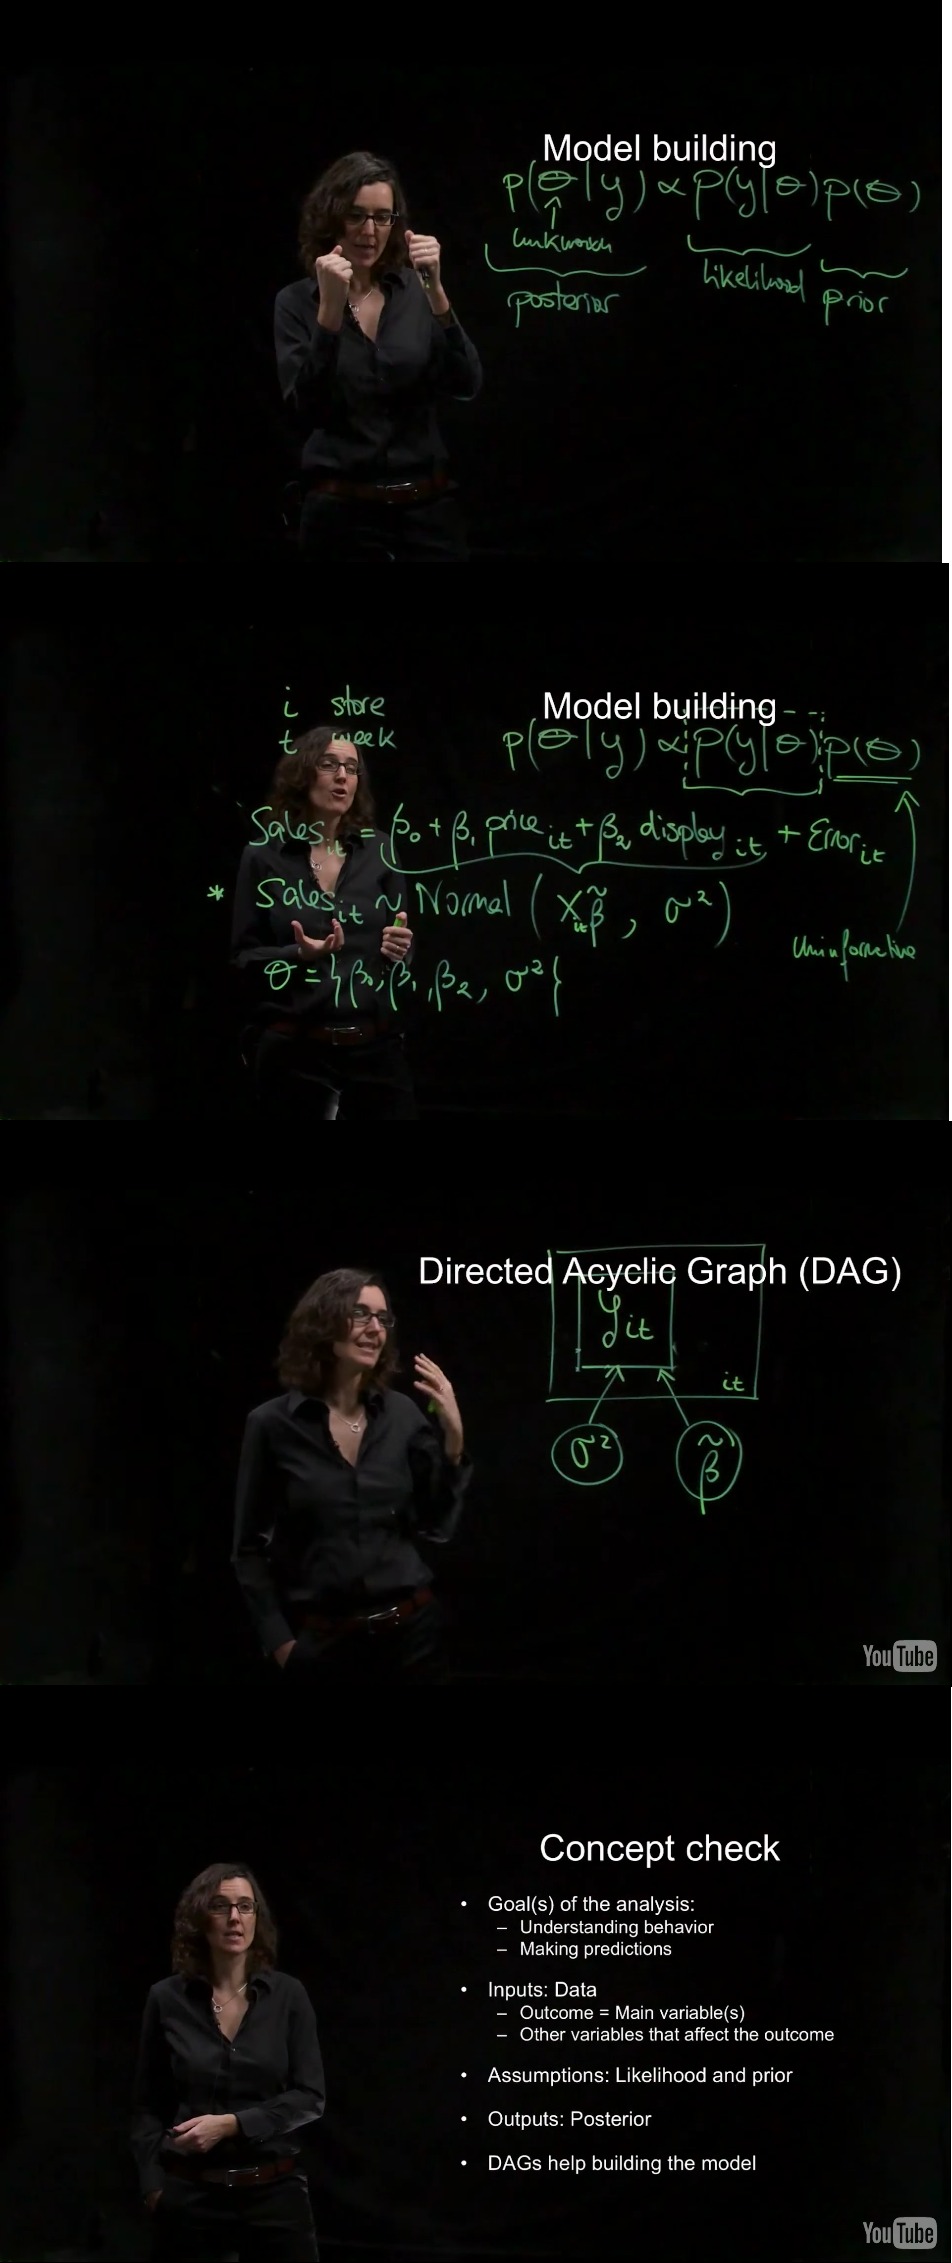 Model building
p(θ|y) ∝ p(y|θ)p(θ)
unknown
posterior
likelihood
prior
i store
t week
Model building
p(θ|y) ∝ p(y|θ) p(θ)
Sales_it = β₀ + β₁ price_it + β₂ display_it + Error_it
* Sales_it ~ Normal ( X_it β̃ , σ² )
Uninformative
θ = { β₀, β₁, β₂, σ² }
Directed Acyclic Graph (DAG)
y_it
it
σ² β̃
YouTube
Concept check
• Goal(s) of the analysis:
– Understanding behavior
– Making predictions
• Inputs: Data
– Outcome = Main variable(s)
– Other variables that affect the outcome
• Assumptions: Likelihood and prior
• Outputs: Posterior
• DAGs help building the model
YouTube